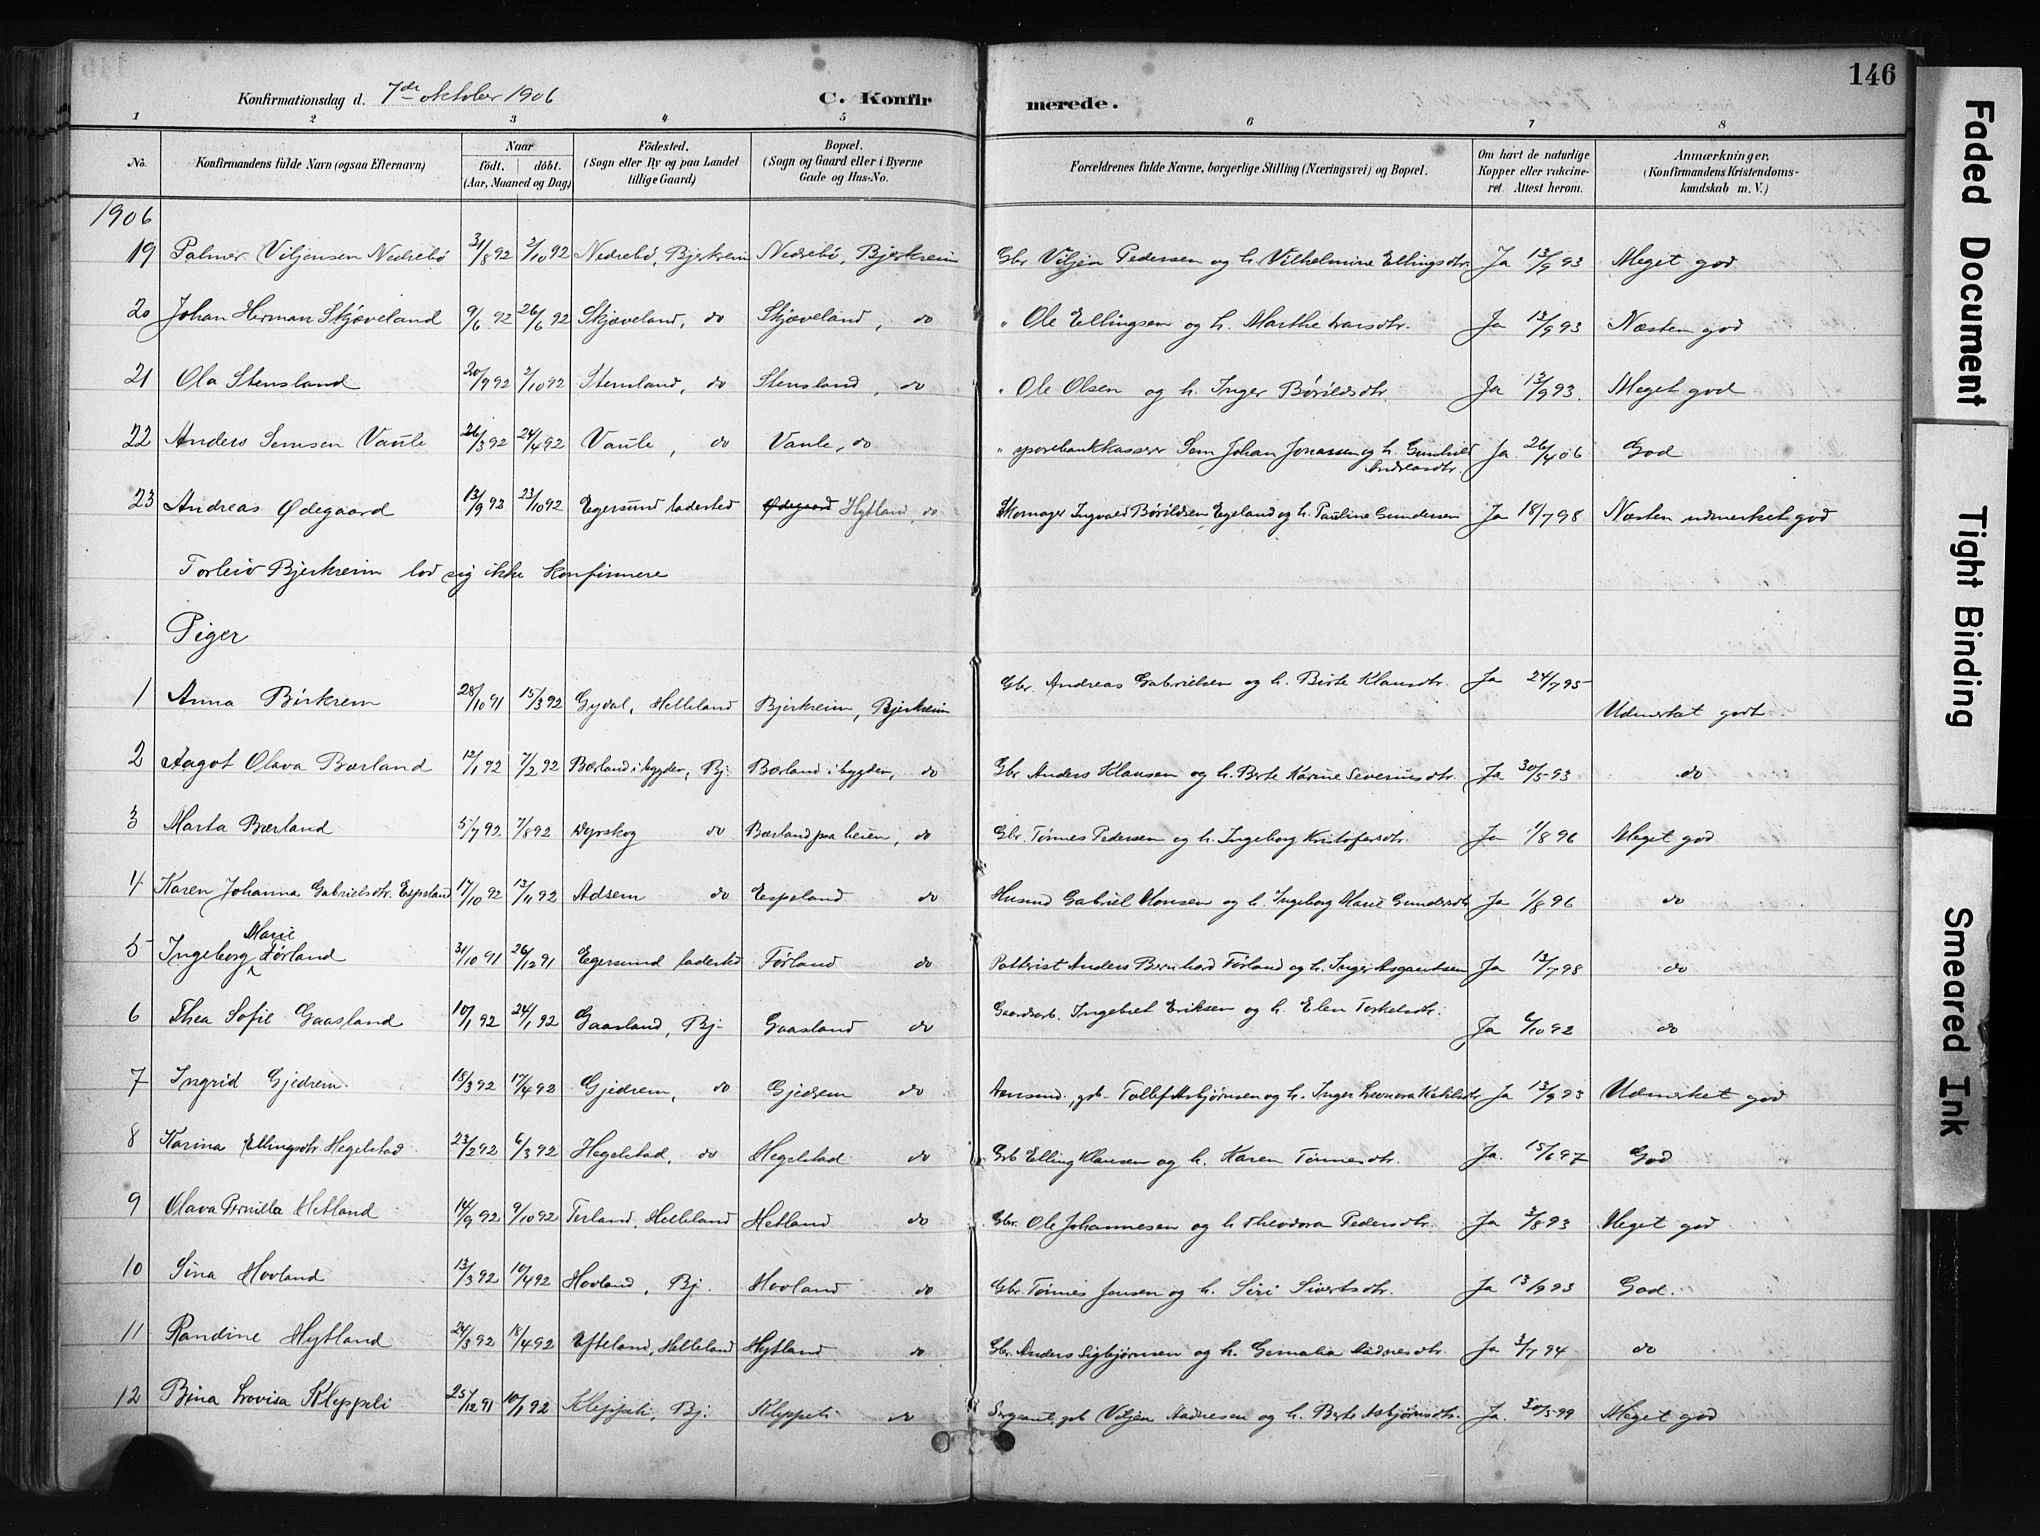 146
Konfirmationsdag d. 7de oktober 1906
C. Konfirmerede.
1 2 3 4 5 6 7 8
No. Konfirmandens fulde Navn (ogsaa Efternavn) Naar født. døbt. (Aar, Maaned og Dag) Födested. (Sogn eller By og paa Landet tillige Gaard) Bopæl. (Sogn og Gaard eller i Byerne Gade og Hus-No. Forældrenes fulde Navne, borgerlige Stilling (Næringsvei) og Bopæl. Om havt de naturlige Kopper eller vakcineret. Attest herom. Anmærkninger, (Konfirmandens Kristendomskundskab m. V.)
1906
19 Palmer Viljensen Nedrebö 31/8 92 2/10 92 Nedrebö, Bjerkreim Nedrebö, Bjerkreim Gbr Viljen Pedersen og h. Vilhelmine Ellingsdtr. Ja 13/9 93 Meget god
20 Johan Herman Skjæveland 9/6 92 26/6 92 Skjæveland, do Skjæveland, do " Ole Ellingsen og h. Marthe Larsdtr. Ja 13/9 93 Næsten god
21 Ola Stensland 20/9 92 2/10 92 Stensland, do Stensland, do " Ole Olsen og h. Inger Børildsdtr. Ja 13/9 93. Meget god
22 Anders Semsen Vaule 26/3 92 24/4 92 Vaule, do Vaule, do " sparebankkasserer Sem Johan Jonassen og h. Gunhild Andreasdtr. Ja 26/4 06 God
23 Andreas Ødegaard 13/9 92 23/10 92 Egersund ladested Ødegaard Hytland, do Skomager Ingvald Børildsen Egeland og h. Pauline Gundersen Ja 18/7 98 Næsten udmerket god
Torleiv Bjerkreim lod sig ikke konfirmere
Piger
1 Anna Birkrem 28/10 91 15/3 92 Gydal, Helleland Bjerkreim, Bjerkreim Gbr. Andreas Gabrielsen og h. Birte Klausdtr. Ja 24/7 95 Udmerket godt
2 Aagot Olava Bærland 12/1 92 7/2 92 Bærland i bygden, Bj. Bærland i bygden, do Gbr Anders Klausen og h. Berte Karine Severinsdtr. Ja 30/5 93 do
3 Marta Bærland 5/7 92 7/8 92 Dyrskog do Bærland paa heien, do Gbr. Tønnes Pedersen og h. Ingeborg Kristofersdtr. Ja 1/8 96 Meget god
4 Karen Johanna Gabrielsdtr. Espeland 17/10 92 13/11 92 Adsem do Espeland do Husmd Gabriel Monsen og h. Ingeborg Marie Gundersdtr Ja 1/8 96 do
5 Ingeborg Marie Førland 31/10 91 26/12 91 Egersund ladested Førland do Potterist Anders Bernhard Førland og h. Inger Asgautsen Ja 13/7 98 do
6 Thea Sofie Gaasland 10/1 92 24/1 92 Gaasland, Bj- Gaasland do Gaardarb. Ingebret Eriksen og h. Elen Torkelsdtr. Ja 6/10 92 do
7 Ingrid Gjedrem 18/3 92 17/4 92 Gjedrem, do Gjedrem do Lensmd., gb- Tollef Asbjørnsen og h. Inger Leonora Ketilsdtr Ja 13/9 93 Udmerket god
8 Karina Ellingsdtr. Hegelstad 23/2 92 6/3 92 Hegelstad, do Hegelstad do Gb Elling Klausen og h. Karen Tønnesdtr. Ja. 15/6 97 God
9 Olava Pernilla Hetland 14/9 92 9/10 92 Terland, Helleland Hetland do Gbr. Ole Johannesen og h. Theodora Pedersdtr. Ja 3/8 93 Meget god
10 Sina Hovland 13/3 92 10/4 92 Hovland, Bj. Hovland do Gbr. Tønnes Jensen og h. Siri Sivertsdtr. Ja 13/9 93 God.
11 Randine Hytland 24/3 92 18/4 92 Efteland, Helleland Hytland do Gbr. Anders Sigbjørnsen og h. Gemalia Aadnesdtr. Ja 3/7 94 do
12 Bina Lovisa Kleppeli 25/12 91 10/1 92 Kleppeli, Bj. Kleppeli do Sergeant, gb Viljen Aadnesen og h. Berte Asbjørnsdtr. Ja. 30/5 99 Meget god
Faded Document
Tight Binding
Smeared Ink